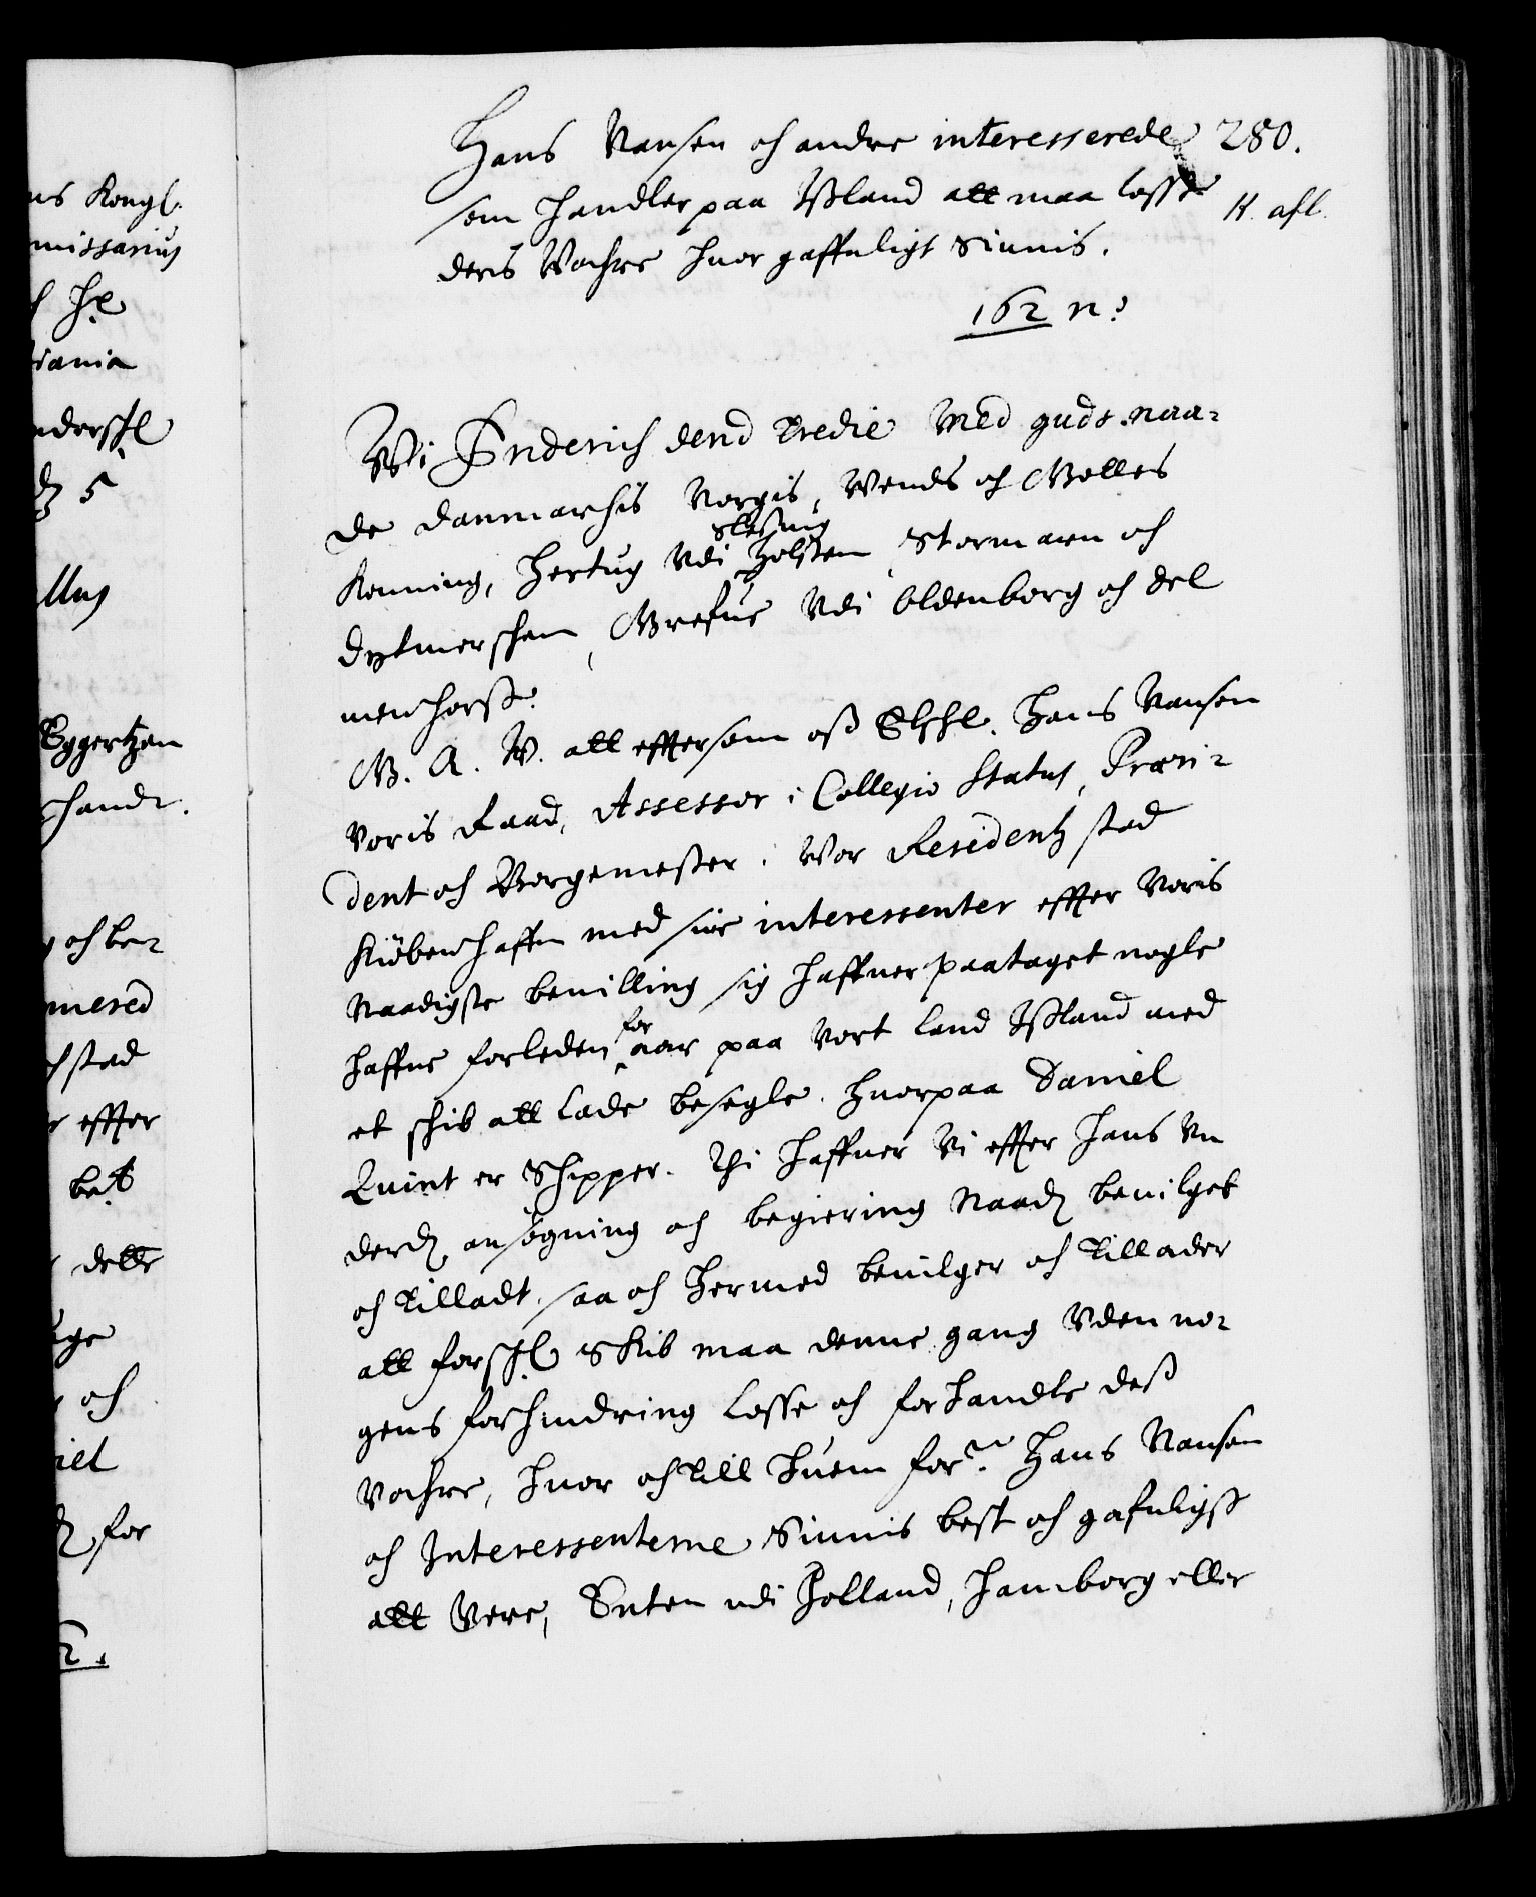 Hans Nansen och andre interesserede 280.
som handler paa Ißland att maa losse K. afl.
deris Wahre huor gaffnligt Siunis.
162 n:
Wi Friderich dend Tredie Med guds naa-
de Danmarchis Norgis, Wends och Gottes
Konning, Hertug Udi Slesuig Holsten Stormarn och
Dytmerschen, Greffue Udi Oldenborg och Del
menhorst.
G. A. W. att efftersom oß Elschl. Hans Nansen
Voris Raad, Assessor i Collegio Status, Præsi-
dent och Borgemester i Vor Residentz stad
Kiöbenhaffn med sine interessenter effter Voris
Naadigste beuilling sig haffuer paataget nogle
haffne forleden for aar paa Vort Land Ißland med
et schib att lade besegle. Huorpaa Daniel
Quint er Schipper. Thi haffuer Vi effter hans Un
derd. ansögning och begiering Naad. beuilget
och Tilladt, saa och Hermed beuilger och Tillader
att forschl. Skib maa denne gang Uden no-
gens forhindring Losse och forhandle deß
Vahre, huor och till huem forne. Hans Nansen
och Interessenterne Siunis best och gafnligst
att Vere, Enten udi Holland, Hamborg eller
ns Kongl.
missarius
iania
5
llus
Eggertzen
hand.
och be-
mered
stad
effter
bet
dette
och
for
2.